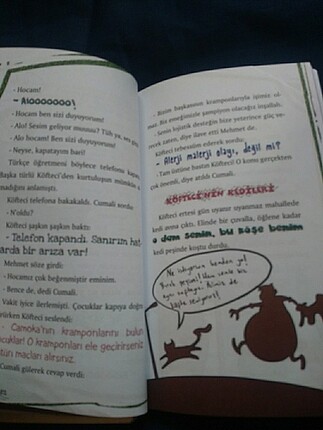 - Hocam!
- Alooooooo!
- Hocam ben sizi duyuyorum!
- Alo! Sesim geliyor mu
- Alo hocam! Ben sizi duyuyorum!
- Neyse, kapatayım bari!
Türkçe öğretmeni böylece telefonu kapa
Başka türlü Köfteci'den kurtuluşun mümkün
madığını anlamıştı.
Köfteci telefona bakakaldı. Cumali sordu:
- N'oldu?
Köfteci şaşkın şaşkın baktı:
- Telefon kapandı. Sanırım hat
arda bir arıza var!
Mehmet söze girdi:
- Hocamız çok beğenmiştir eminim.
- Bence de, dedi Cumali.
Vakit iyice ilerlemişti. Çocuklar kapıya doğru
rürken Köfteci seslendi:
- Camoka'nın kramponlarını bulun
ocuklar! O kramponları ele geçirirseniz
tün maçları alırsınız.
Cumali gülerek cevap verdi:
- Bizim başkasının kramponlarıyla işimiz ol
maz. Biz emeğimizle şampiyon olacağız inşallah.
- Senin lojistik desteğin bize yeterince güç ve
recek zaten, diye ilave etti Mehmet de.
Köfteci tebessüm ederek sordu:
- Alerji malerji olayı, değil mi?
- Tam üstüne bastın Köfteci! O konu gerçekten
çok önemli, diye atıldı Cumali.
KÖFTECİ'NİN KEDİLERİ
Köfteci ertesi gün uyanır uyanmaz mahallede
kedi avına çıktı. Elinde bir çuvalla, öğlene kadar
o dam senin, bu köşe benim
kedi peşinde koştu durdu.
Ne istiyorsun benden ya!